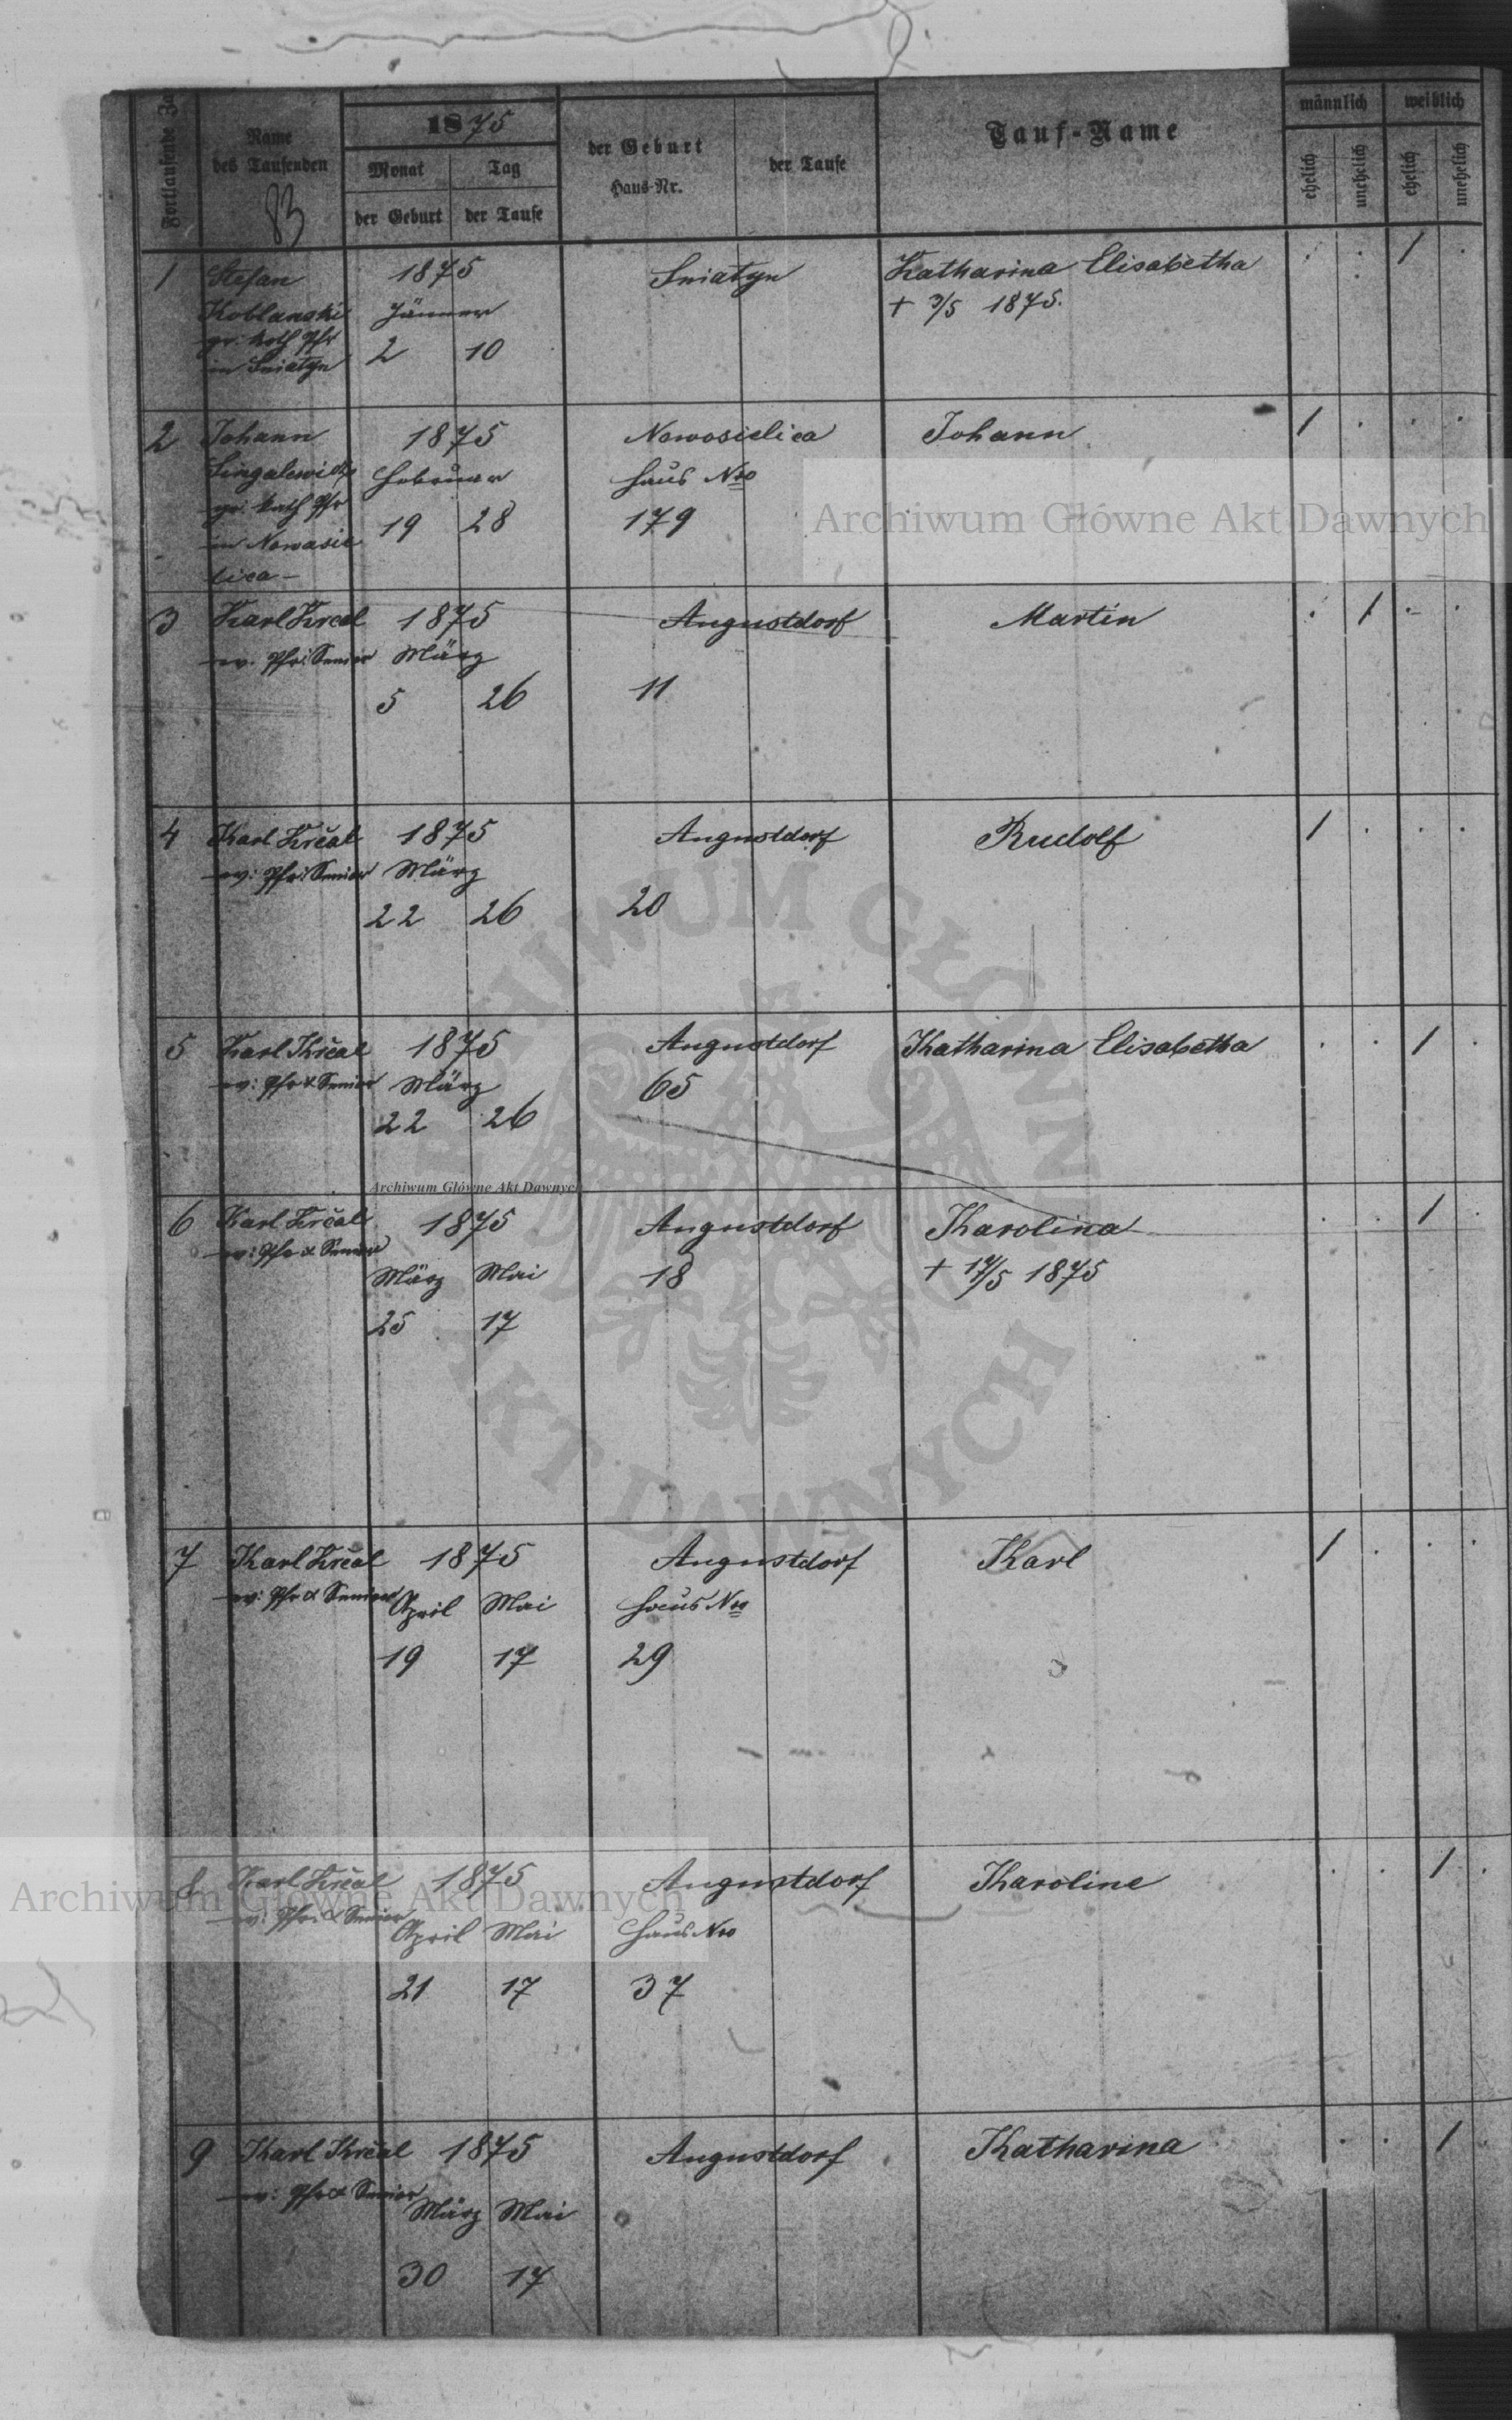 Fortlaufende Za
Name
des Taufenden
83
1875
Monat
Tag
der Geburt
der Taufe
der Geburt
Haus-Nr.
der Taufe
Tauf-Name
männlich
weiblich
ehelich
unehelich
ehelich
unehelich
1
Stefan
Koblanski
gr: kath Pfr
in Sniatyn
1875
Jänner
2 10
Sniatyn
Katharina Elisabetha
+ 3/5 1875.
1
2
Johann
gr. kath Pfr
in Nowosie
lica –
1875
Februar
19 28
Nowosielica
Haus Nro
179
Johann
1
3
Karl Krčal
ev. Pfr: Senior
1875
März
5 26
Augustdorf
11
Martin
1
4
Karl Krčal
ev: Pfr: Senior
1875
März
22 26
Augustdorf
20
Rudolf
1
5
Karl Krčal
ev: Pfr & Senior
1875
März
22 26
Augustdorf
65
Katharina Elisabetha
1
6
Karl Krčal
ev: Pfr & Senior
1875
März Mai
25 17
Augustdorf
18
Karolina
+ 17/5 1875
1
7
Karl Krčal
ev: Pfr & Senior
1875
April Mai
19 17
Augustdorf
Haus Nro
29
Karl
1
8
Karl Krčal
ev: Pfr: & Senior
1875
April Mai
21 17
Augustdorf
Haus Nro
37
Karoline
1
9
Karl Krčal
ev: Pfr & Senior
1875
März Mai
30 17
Augustdorf
Katharina
1
Archiwum Główne Akt Dawnych
Archiwum Główne Akt Dawnych
Archiwum Główne Akt Dawnych
ARCHIWUM GŁÓWNE
AKT DAWNYCH